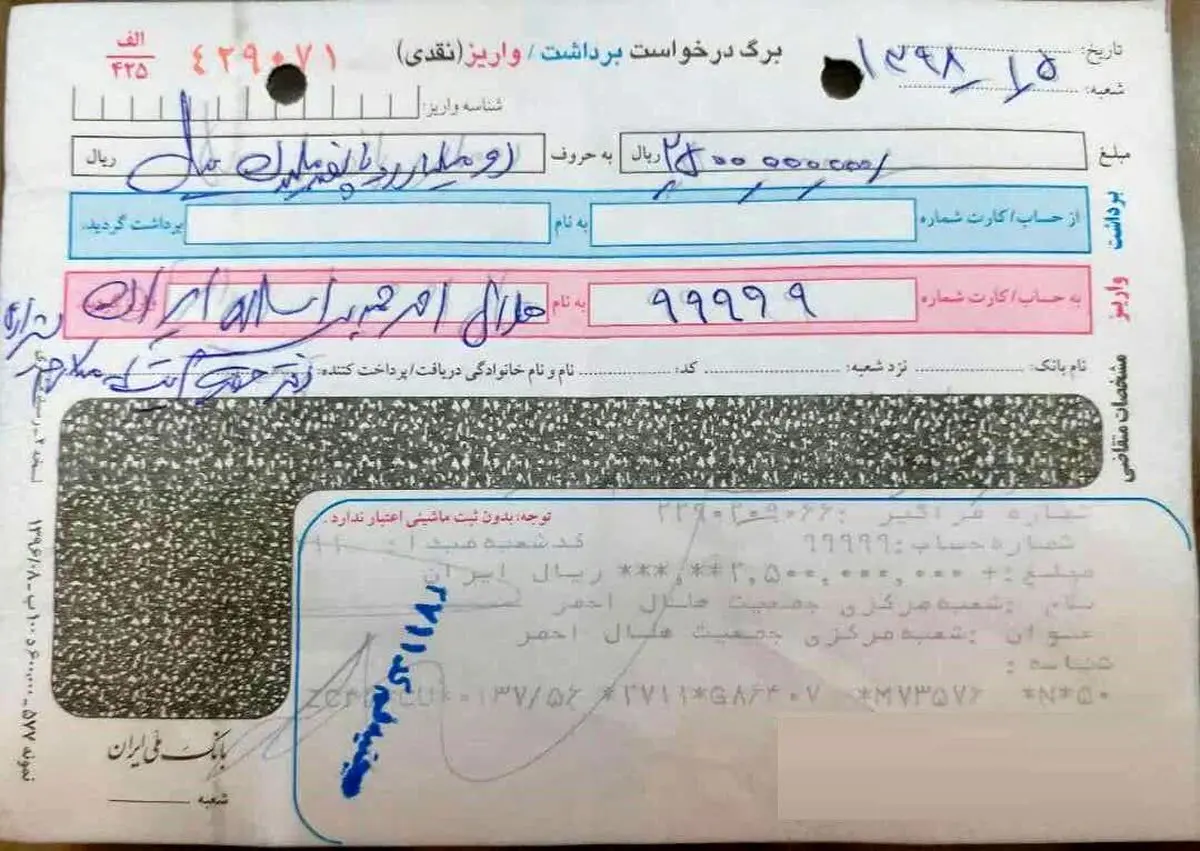 برگ درخواست برداشت / واریز (نقدی)
۴۲۹۰۷۱
الف
۴۲۵
تاریخ: ۱۳۹۸/۱/۵
شعبه:
شناسه واریز:
مبلغ ۲۵۰۰۰۰۰۰۰۰ ریال به حروف دو میلیارد پانصد میلیون ریال
برداشت
از حساب/کارت شماره به نام برداشت گردید.
واریز
به حساب/کارت شماره ۹۹۹۹۹ به نام هلال احمر جمهوری اسلامی ایران
مشخصات متقاضی
نام بانک: نزد شعبه: کد: نام و نام خانوادگی دریافت/پرداخت کننده:
توجه: بدون ثبت ماشینی اعتبار ندارد.
شماره فراگیر: ۲۲۹۰۲۰۹۰۶۶
شماره حساب: ۹۹۹۹۹ کد شعبه مبدا:
مبلغ: +۲,۵۰۰,۰۰۰,۰۰۰**,*** ریال ایران
نام: شعبه مرکزی جمعیت هلال احمر
عنوان: شعبه مرکزی جمعیت هلال احمر
شناسه:
۰۱۳۷/۵۶ *۲۷۱۱*G۸۶۴۰۷ *M۷۳۵۷۶ *N*۵۰
کد ۲۷۱۱
بانک ملی ایران
شعبه